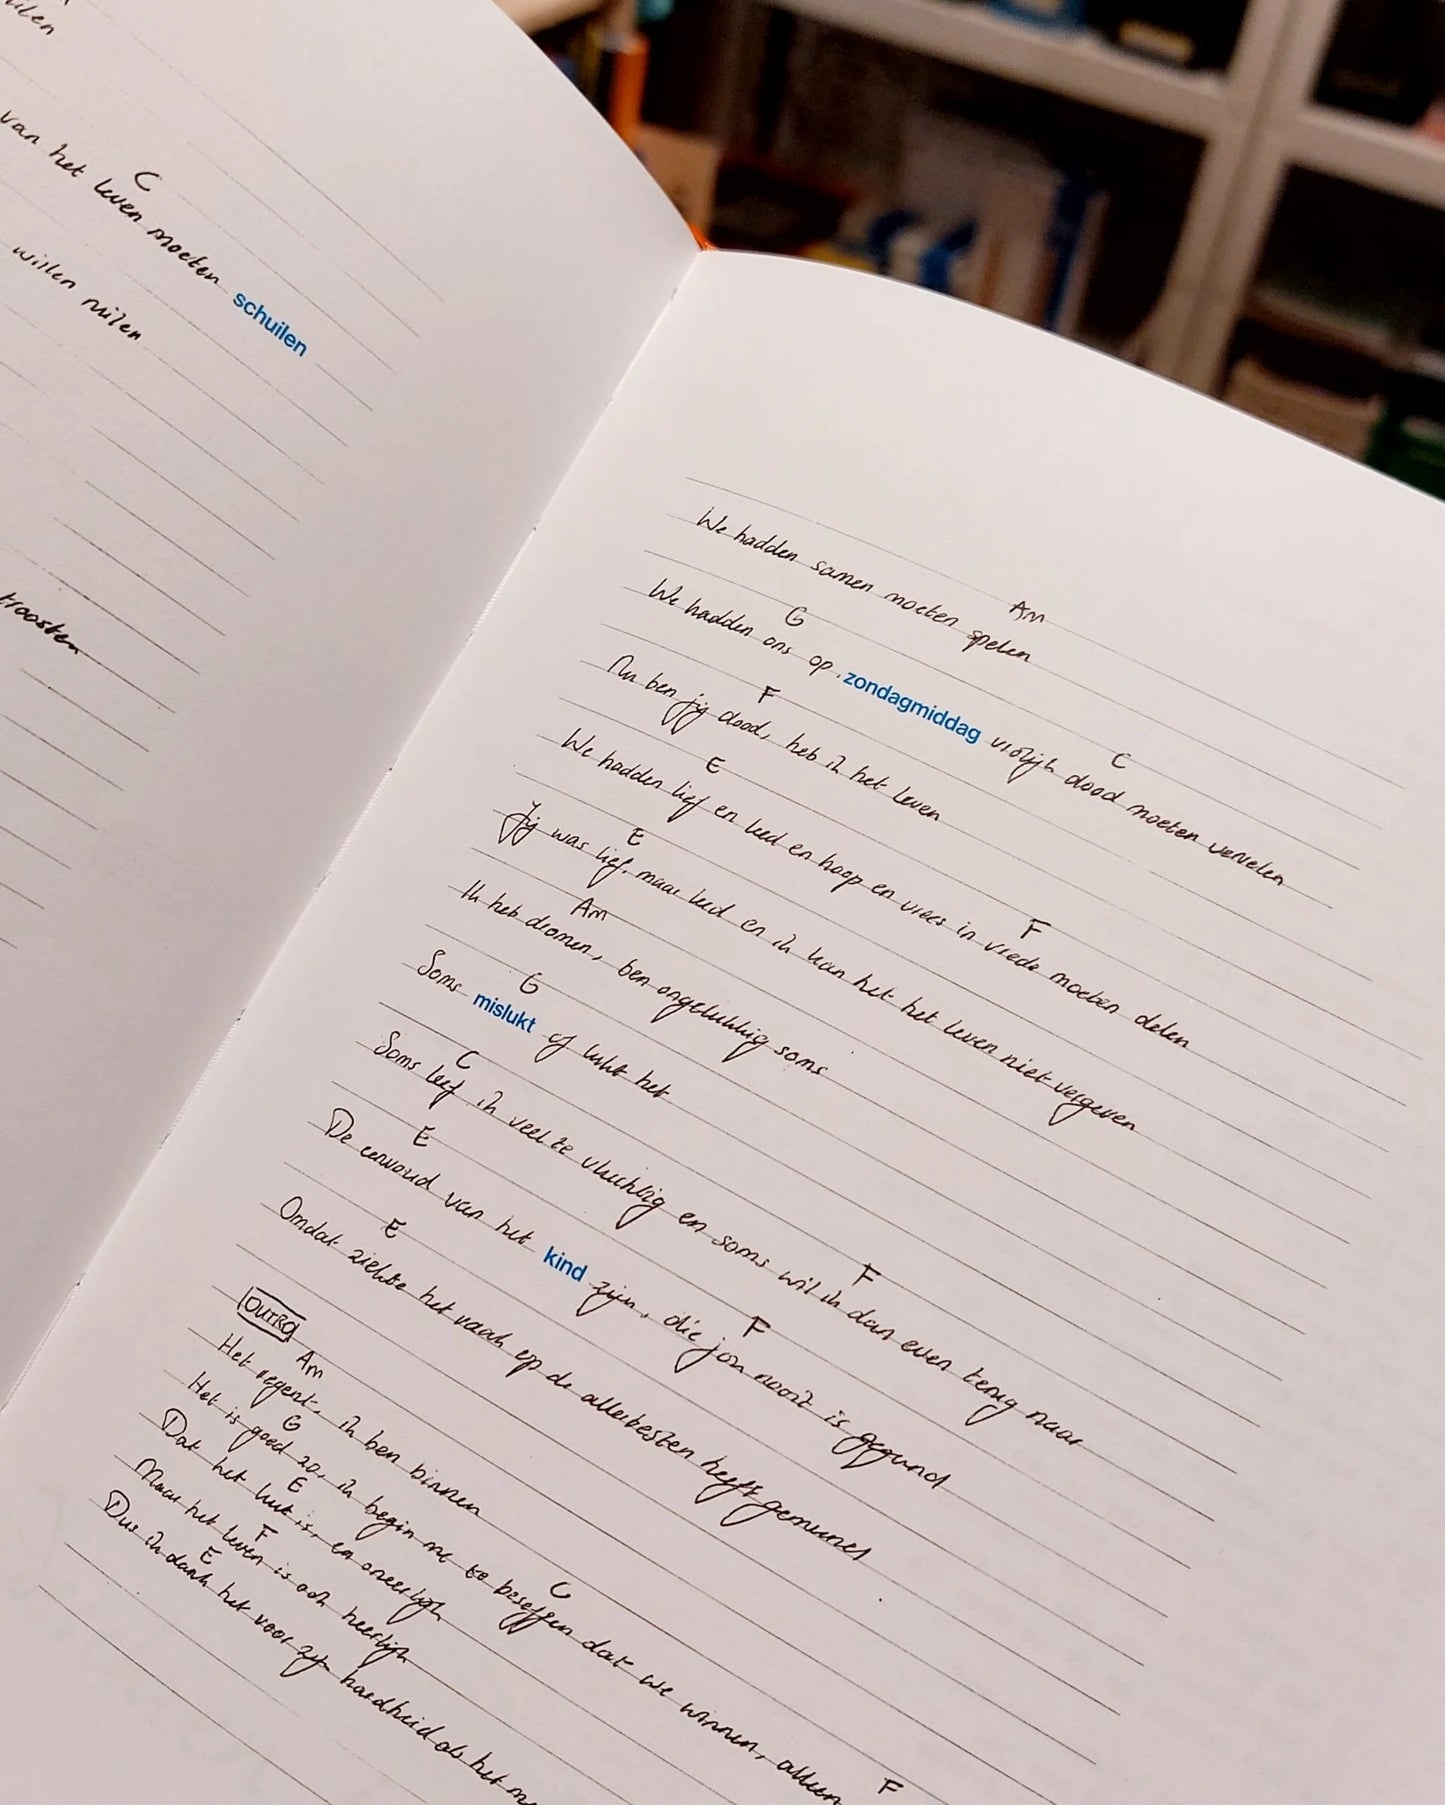 uilen
C
van het leven moeten schuilen
willen ruilen
troosten
Am
We hadden samen moeten spelen
G C
We hadden ons op zondagmiddag vrolijk dood moeten vervelen
F
Nu ben jij dood, heb ik het leven
E F
We hadden lief en leed en hoop en vrees in vrede moeten delen
E
Jij was lief, maar leed en ik kan het het leven niet vergeven
Am
Ik heb dromen, ben ongelukkig soms
G
Soms mislukt of lukt het
C F
Soms leef ik veel te vluchtig en soms wil ik dan even terug naar
E F
De eenvoud van het kind zijn, die jou nooit is gegund
E
Omdat ziekte het vaak op de allerbesten heeft gemunt
OUTRO
Am
Het regent, ik ben binnen
G C
Het is goed zo, ik begin me te beseffen dat we winnen, alleen
E F
Dat het kut is, en oneerlijk
F
Maar het leven is ook heerlijk
E
Dus ik dank het voor zijn hardheid als het